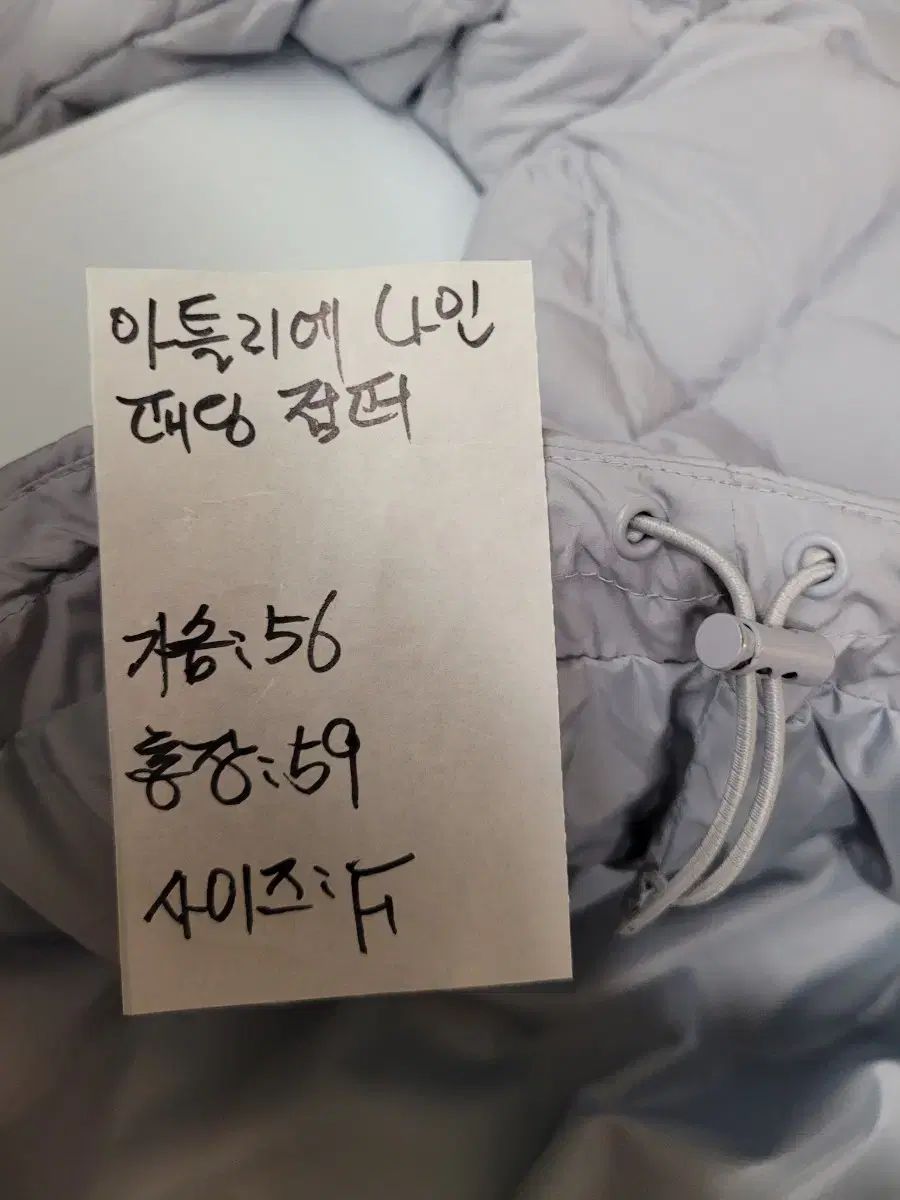 아틀리에 나인
패딩 점퍼
가슴:56
총장:59
사이즈:F